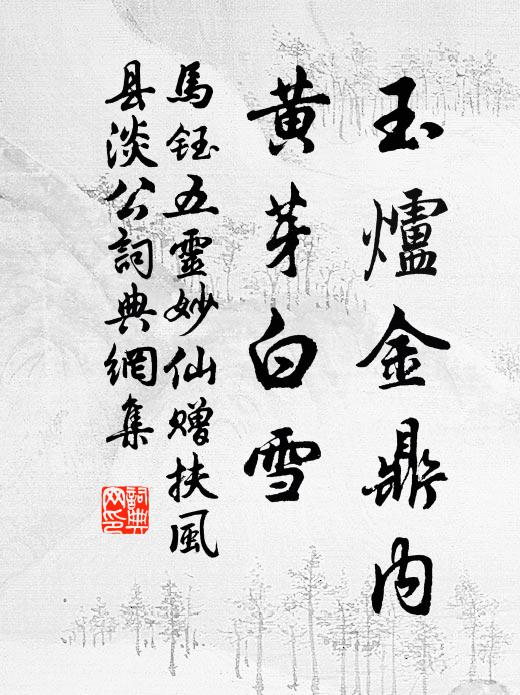 玉爐金鼎內
黃芽白雪
馬鈺五靈妙仙贈扶風
县淡公詞典網集
詞典
网印